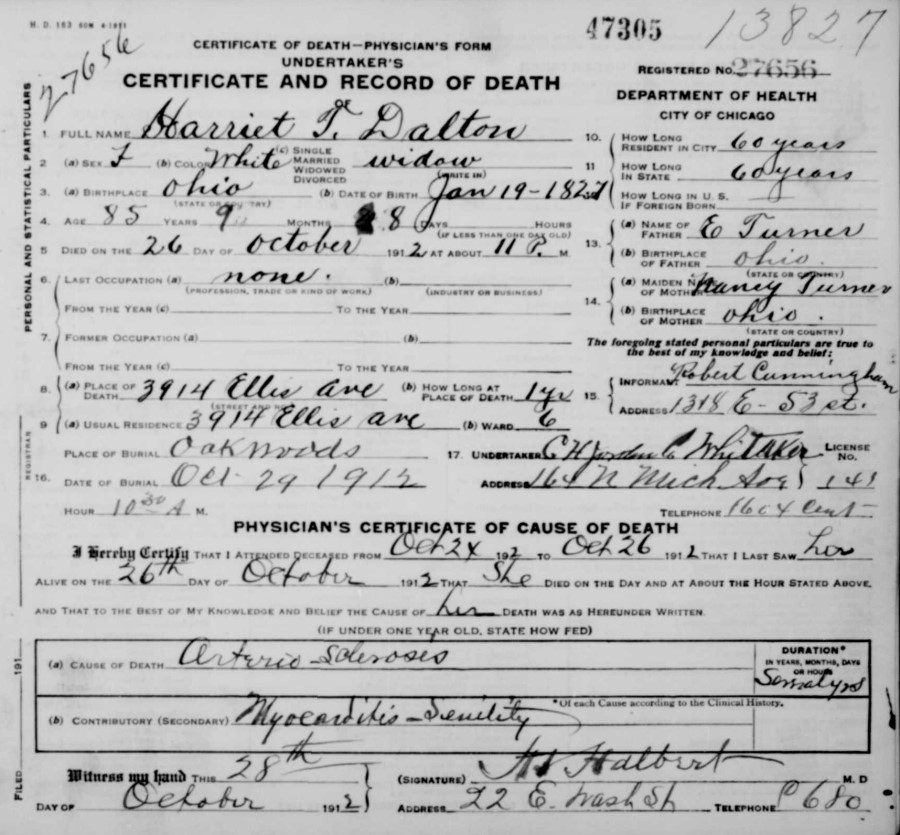 H. D. 153 60M 4-1911
47305 13827
27656
CERTIFICATE OF DEATH—PHYSICIAN'S FORM
UNDERTAKER'S
CERTIFICATE AND RECORD OF DEATH
REGISTERED No. 27656
DEPARTMENT OF HEALTH
CITY OF CHICAGO
PERSONAL AND STATISTICAL PARTICULARS
1. FULL NAME Harriet T. Dalton
2 (a) SEX F (b) COLOR White (c) SINGLE MARRIED WIDOWED DIVORCED widow
(WRITE IN)
3. (a) BIRTHPLACE Ohio (b) DATE OF BIRTH Jan 19-1827
(STATE OR COUNTRY)
4. AGE 85 YEARS 9 MONTHS 8 DAYS HOURS
(IF LESS THAN ONE DAY OLD)
5 DIED ON THE 26 DAY OF October 1912 AT ABOUT 11 P. M.
6. LAST OCCUPATION (a) none. (b)
(PROFESSION, TRADE OR KIND OF WORK) (INDUSTRY OR BUSINESS)
FROM THE YEAR (c) TO THE YEAR
7. FORMER OCCUPATION (a) (b)
FROM THE YEAR (c) TO THE YEAR
8. (a) PLACE OF DEATH 3914 Ellis Ave (b) HOW LONG AT PLACE OF DEATH 1 yr
(STREET AND NO.)
9 (a) USUAL RESIDENCE 3914 Ellis Ave (b) WARD 6
10. HOW LONG RESIDENT IN CITY 60 years
11 HOW LONG IN STATE 60 years
HOW LONG IN U. S. IF FOREIGN BORN
13. (a) NAME OF FATHER E Turner
(b) BIRTHPLACE OF FATHER Ohio.
(STATE OR COUNTRY)
14. (a) MAIDEN NAME OF MOTHER Nancy Turner
(b) BIRTHPLACE OF MOTHER Ohio.
(STATE OR COUNTRY)
The foregoing stated personal particulars are true to
the best of my knowledge and belief:
15. INFORMANT Robert Cunningham
ADDRESS 1318 E-53 st.
REGISTRAR
16. PLACE OF BURIAL Oakwoods
DATE OF BURIAL Oct 29 1912
HOUR 10 30 A M.
17. UNDERTAKER C H Jordan Co Whitaker LICENSE No.
ADDRESS 164 N Mich Ave 141
TELEPHONE 1664 Cent
PHYSICIAN'S CERTIFICATE OF CAUSE OF DEATH
I Hereby Certify THAT I ATTENDED DECEASED FROM Oct 24 1912 TO Oct 26 1912 THAT I LAST SAW her
ALIVE ON THE 26th DAY OF October 1912 THAT She DIED ON THE DAY AND AT ABOUT THE HOUR STATED ABOVE,
AND THAT TO THE BEST OF MY KNOWLEDGE AND BELIEF THE CAUSE OF her DEATH WAS AS HEREUNDER WRITTEN
(IF UNDER ONE YEAR OLD, STATE HOW FED)
(a) CAUSE OF DEATH Arterio-Scleroses
DURATION*
IN YEARS, MONTHS, DAYS
OR HOURS
Several yrs
*Of each Cause according to the Clinical History.
(b) CONTRIBUTORY (SECONDARY) Myocarditis-Senility
FILED 191
Witness my hand THIS 28th
DAY OF October 1912
(SIGNATURE) Halbert M. D
ADDRESS 22 E. Wash St TELEPHONE C 680